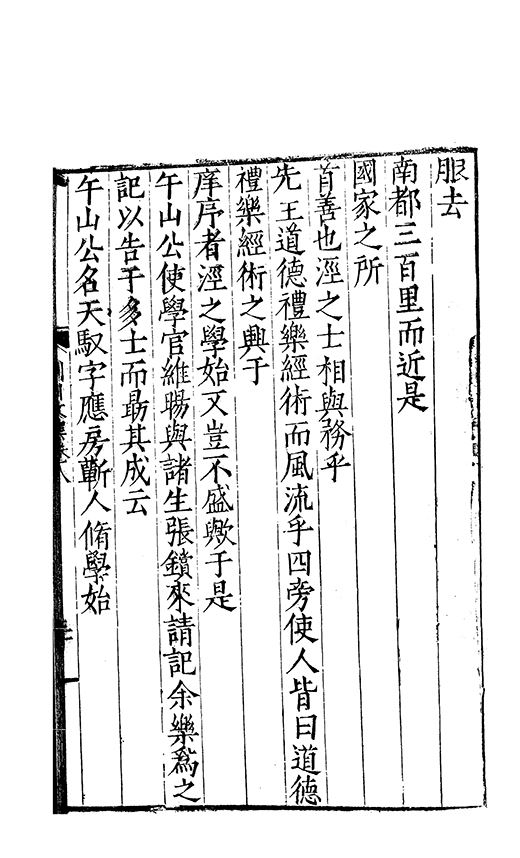 服去
南都三百里而近是
國家之所
首善也涇之士相與務乎
先王道德禮樂經術而風流乎四旁使人皆曰道德
禮樂經術之興于
庠序者涇之學始又豈不盛歟于是
午山公使學官維暘與諸生張鎖來請記余樂爲之
記以告于多士而勗其成云
午山公名天馭字應房蘄人脩學始